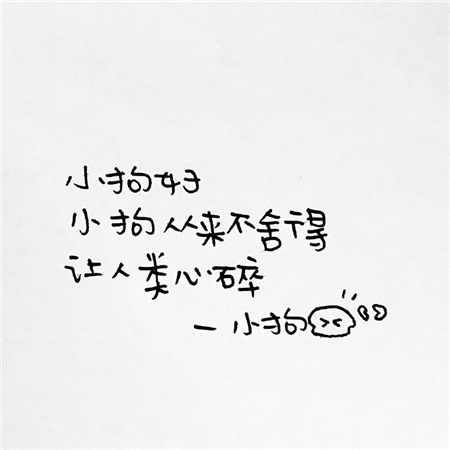 小狗好
小狗从来不舍得
让人类心碎
— 小狗